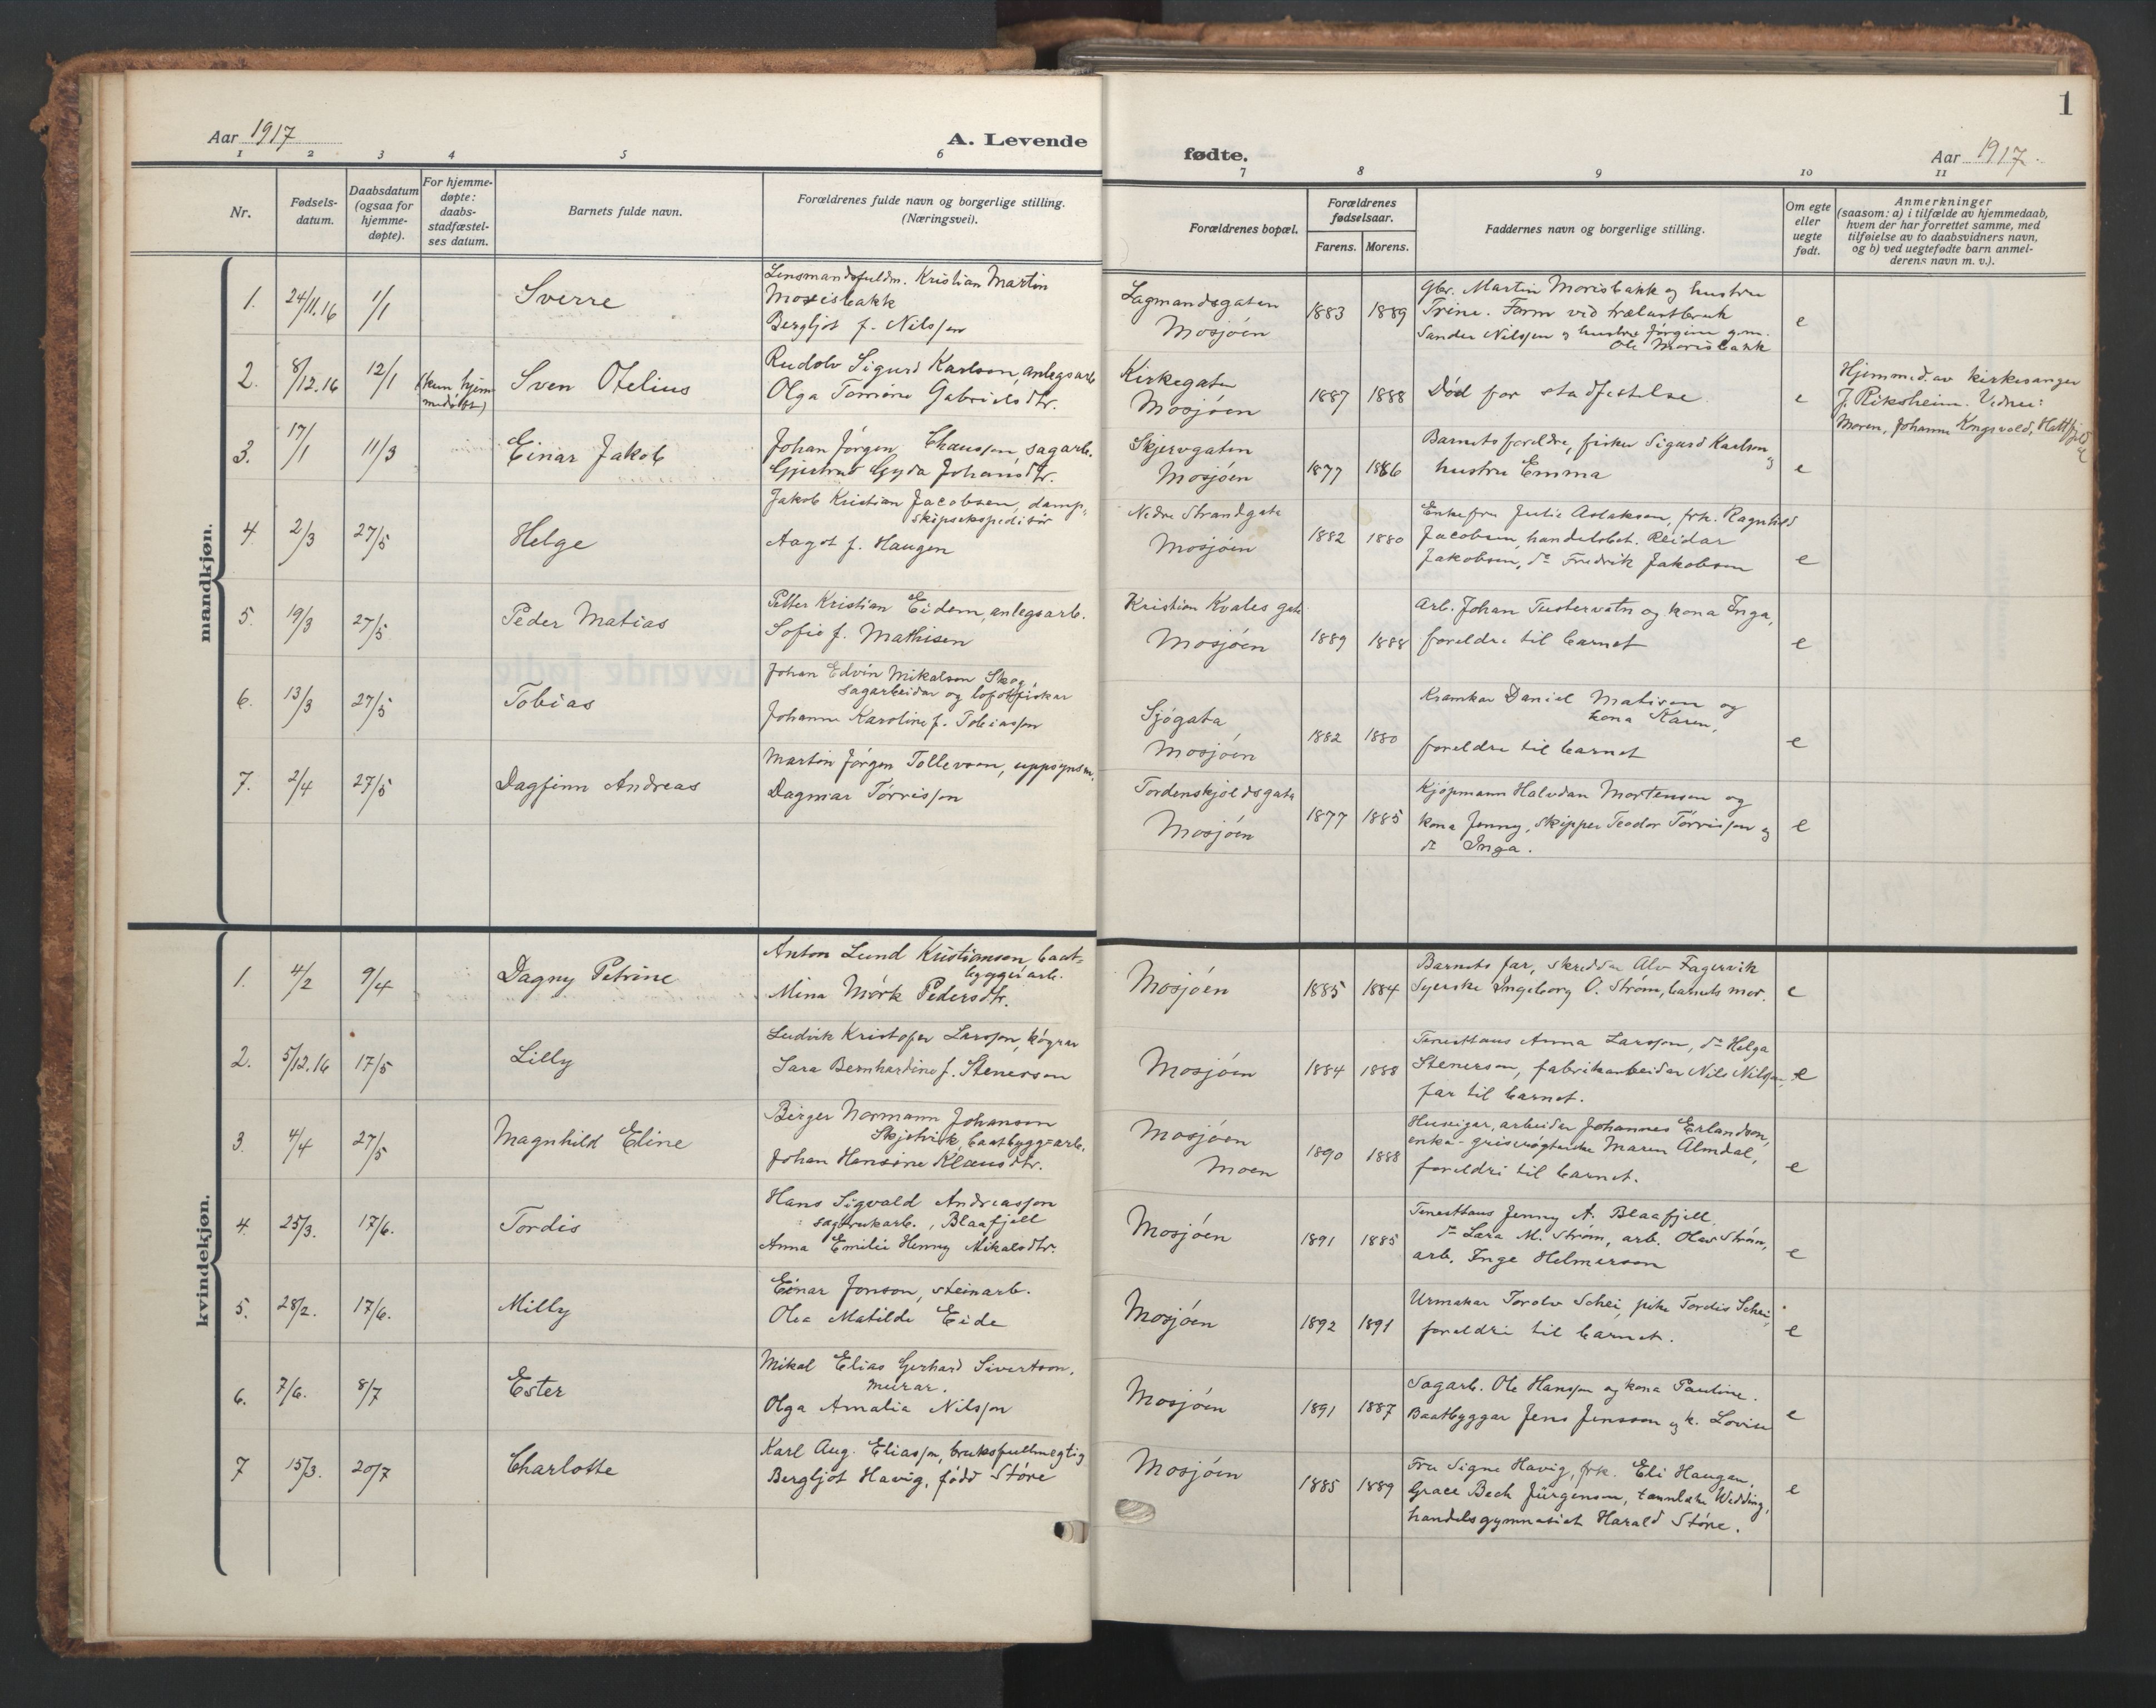 1
Aar 1917
A. Levende
fødte.
Aar 1917.
1 2 3 4 5 6 7 8 9 10 11
Nr.
Fødsels-
datum.
Daabsdatum
(ogsaa for
hjemme-
døpte).
For hjemme-
døpte:
daabs-
stadfæstel-
ses datum.
Barnets fulde navn.
Forældrenes fulde navn og borgerlige stilling.
(Næringsvei).
Forældrenes bopæl.
Forældrenes
fødselsaar.
Farens. Morens.
Faddernes navn og borgerlige stilling.
Om egte
eller
uegte
født.
Anmerkninger
(saasom: a) i tilfælde av hjemmedaab,
hvem der har forrettet samme, med
tilføielse av to daabsvidners navn,
og b) ved uegtefødte barn anmel-
derens navn m. v.).
mandkjøn.
1. 24/11.16 1/1 Sverre
Lensmandsfuldm. Kristian Martin
Morisbakk
Bergljot f. Nilssen
Lagmandsgaten
Mosjøen
1883 1889
Gbr. Martin Morisbakk og hustru
Trine. Form. ved trælastbruk
Sander Nilssen og hustru Jørgine gm.
Ole Morisbakk
e
2. 8/12.16 12/1 (kun hjem
medøbt) Sven Otelius
Rudolv Sigurd Karlson, anlegsarb
Olga Tomine Gabrielsdtr.
Kirkegaten
Mosjøen
1887 1888
Død før stadfestelse
e
Hjemmed. av kirkesanger
J. Riksheim. Vidner:
Moren, Johanna Kongsvold, Hattfjeld
3. 17/1 11/3 Einar Jakob
Johan Jørgen Clausson, sagarb.
Gjertrud Gyda Johansdtr.
Skjervgaten
Mosjøen
1877 1886
Barnets foreldre, fisker Sigurd Karlson og
hustru Emma
e
4. 2/3 27/5 Helge
Jakob Kristian Jacobsen, damp-
skipsekspeditør
Aagot f. Haugen
Nedre Strandgate
Mosjøen
1882 1880
Enkefru Julie Aslaksen, frk. Ragnhild
Jacobsen, handelsbet. Reidar
Jakobsen, do Fredrik Jakobsen
e
5. 19/3 27/5 Peder Matias
Petter Kristian Eidem, anlegsarb.
Sofie f. Mathisen
Kristian Kvales gate
Mosjøen
1889 1888
Arb. Johan Tustervatn og kona Inga,
foreldre til barnet
e
6. 13/3 27/5 Tobias
Johan Edvin Mikalson Skog,
sagarbeidar og lofotfiskar
Johanna Karoline f. Tobiasson
Sjøgata
Mosjøen
1882 1880
Kramkar Daniel Matison og
kona Karen,
foreldre til barnet
e
7. 2/4 27/5 Dagfinn Andreas
Martin Jørgen Tollevson, uppsynsm.
Dagmar Tørrisson
Tordenskjoldsgata
Mosjøen
1877 1885
Kjøpmann Halvdan Mortensen og
kona Jenny, skipper Teodor Tørrisson og
do Inga.
e
kvindekjøn.
1. 4/2 9/4 Dagny Petrine
Anton Lund Kristianson baat-
byggjerarb.
Mina Mørk Pedersdtr.
Mosjøen
1885 1884
Barnets far, skredder Alv Fagervik
Syerske Ingeborg O. Strøm, barnets mor.
e
2. 5/12.16 17/5 Lilly
Ludvik Kristofer Larsson, køyrar
Sara Bernhardine f. Stenerson
Mosjøen
1884 1888
Tenesttaus Anna Larsson, do Helga
Stenerson, fabrikarbeidar Nils Nilsson,
far til barnet.
e
3. 4/4 27/5 Magnhild Eline
Birger Normann Johanson
Skjelvik baatbygg-arb.
Johan Hansine Klausdtr.
Mosjøen
Moen
1890 1888
Huseigar, arbeider Johannes Erlandson,
enka- Maren Almdal,
foreldri til barnet.
e
4. 25/3. 17/6. Tordis
Hans Sigvald Andreasson
sagbrukarb., Blaafjell
Anna Emilie Henny Mikalsdtr.
Mosjøen
1891 1885
Tenesttaus Jenny A. Blaafjell,
do Lara M. Strøm, arb. Olav Strøm,
arb. Inge Helmerson
e
5. 28/2. 17/6. Milly
Einar Jonson, steinarb.
Olea Matilde Eide
Mosjøen
1892 1891
Urmakar Torolv Schei, pike Tordis Schei,
foreldri til barnet.
e
6. 7/6. 8/7 Ester
Mikal Elias Gerhard Sivertson,
murar.
Olga Amalia Nilsson
Mosjøen
1891 1887
Sagarb. Ole Hansson og kona Pauline.
Baatbyggar Jens Jensson og k. Lovise
e
7 15/3. 20/7 Charlotte
Karl Aug. Eliasson, bruksfullmegtig
Bergljot Havig, fødd Støre
Mosjøen
1885 1889
Fru Signe Havig, frk. Eli Haugan,
Grace Bech Jürgensen, tannlæke Wedding,
handelsgymnasiet Harald Støre.
e